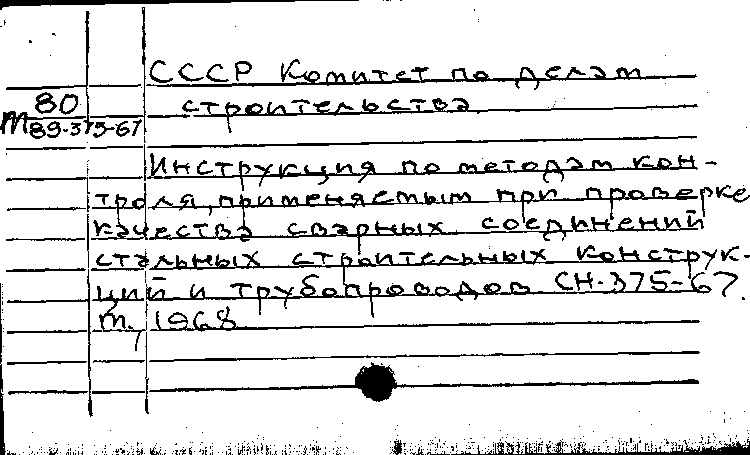 СССР Комитет по делам
80 строительства
м89-375-67
Инструкция по методам кон-
троля, применяемым при проверке
качества сварных соединений
стальных строительных конструк-
ций и трубопроводов СН-375-67.
м., 1968